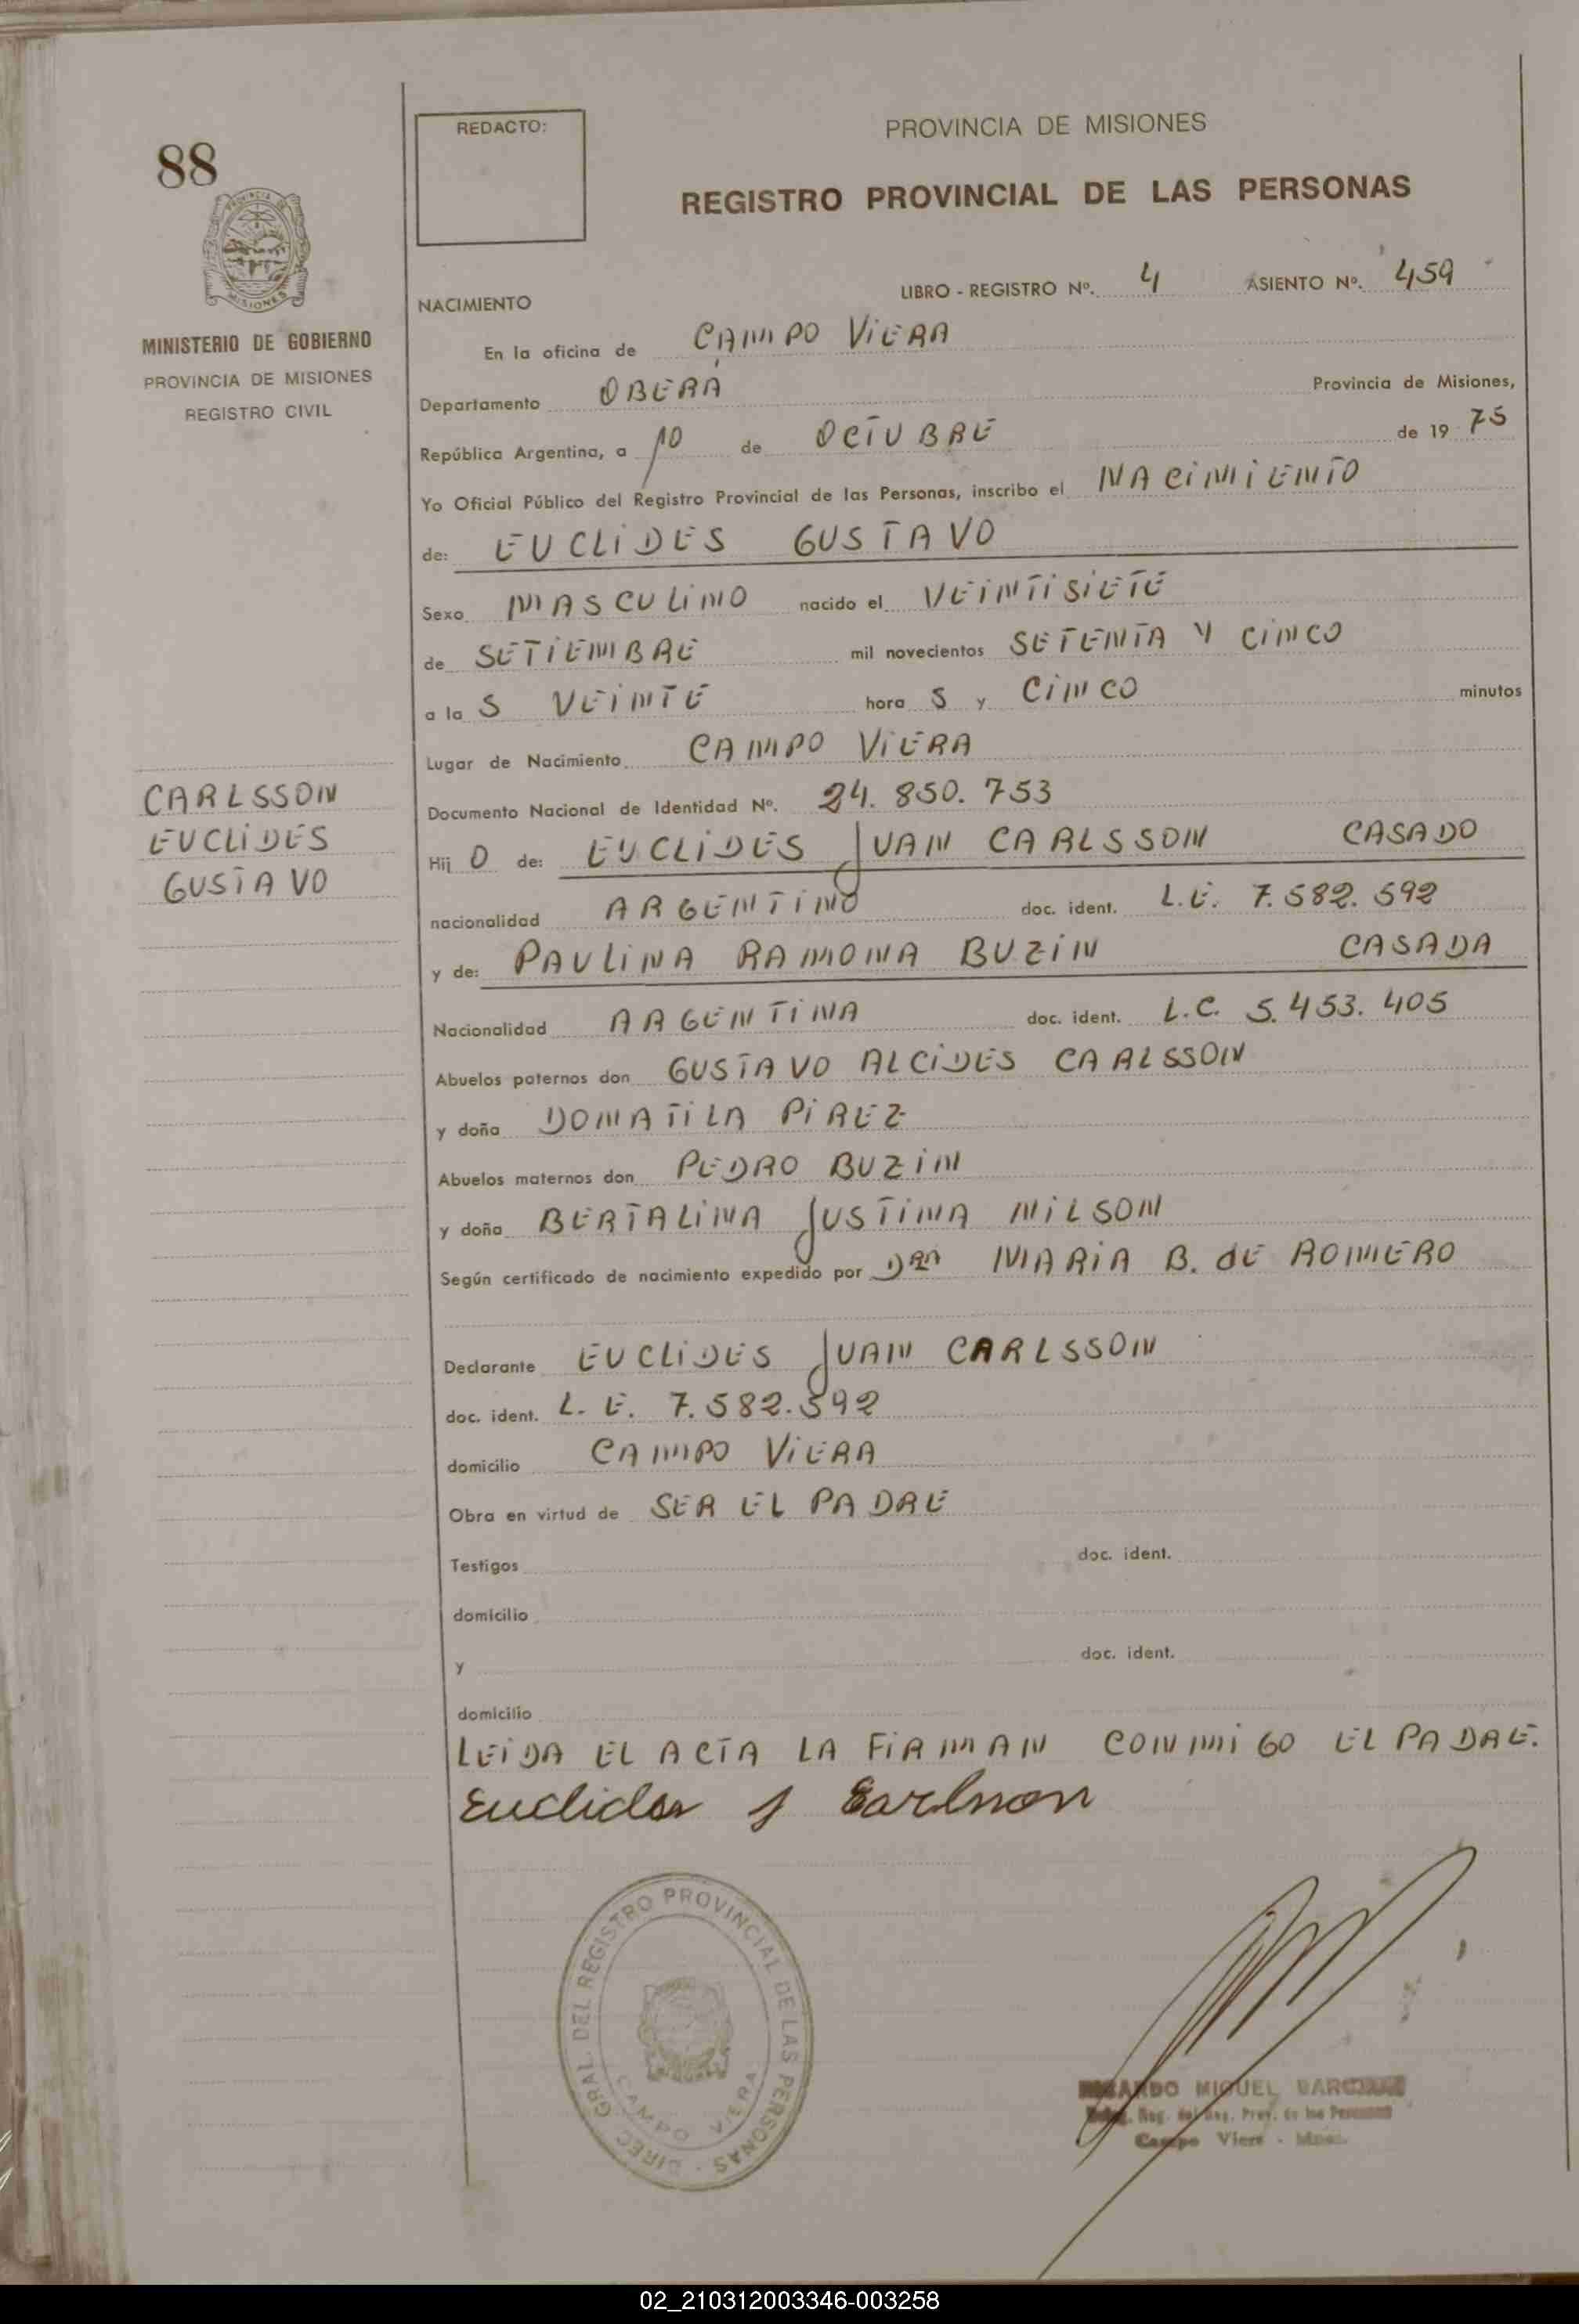 88
MISIONES
MINISTERIO DE GOBIERNO
PROVINCIA DE MISIONES
REGISTRO CIVIL
CARLSSON
EUCLIDES
GUSTAVO
REDACTO:
PROVINCIA DE MISIONES
REGISTRO PROVINCIAL DE LAS PERSONAS
LIBRO - REGISTRO Nº. 4 ASIENTO Nº. 459
NACIMIENTO
En la oficina de CAMPO VIERA
Departamento OBERÁ Provincia de Misiones,
República Argentina, a 10 de OCTUBRE de 19 75
Yo Oficial Público del Registro Provincial de las Personas, inscribo el NACIMIENTO
de: EUCLIDES GUSTAVO
Sexo MASCULINO nacido el VEINTISIETE
de SETIEMBRE mil novecientos SETENTA Y CINCO
a la S VEINTE hora S y CINCO minutos
Lugar de Nacimiento CAMPO VIERA
Documento Nacional de Identidad Nº. 24.850.753
Hij O de: EUCLIDES JUAN CARLSSON CASADO
nacionalidad ARGENTINO doc. ident. L.E. 7.582.592
y de: PAULINA RAMONA BUZIN CASADA
Nacionalidad ARGENTINA doc. ident. L.C. 5.453.405
Abuelos paternos don GUSTAVO ALCIDES CARLSSON
y doña DOMATILA PIREZ
Abuelos maternos don PEDRO BUZIN
y doña BERTALINA JUSTINA NILSON
Según certificado de nacimiento expedido por DRA MARIA B. de ROMERO
Declarante EUCLIDES JUAN CARLSSON
doc. ident. L.E. 7.582.592
domicilio CAMPO VIERA
Obra en virtud de SER EL PADRE
Testigos doc. ident.
domicilio
y doc. ident.
domicilio
LEIDA EL ACTA LA FIRMAN CONMIGO EL PADRE.
Euclides J Carlsson
DIREC. GRAL. DEL REGISTRO PROVINCIAL DE LAS PERSONAS
CAMPO VIERA
MIGUEL
Campo Viera - Mnes.
02_210312003346-003258